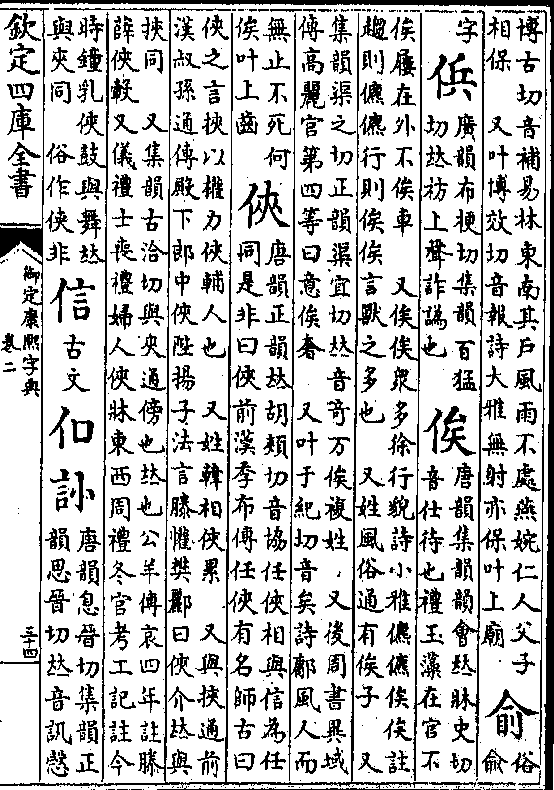 博古切音補易林東南其戸風雨不處燕婉仁人父子
相保 又叶博效切音報詩大雅無射亦保叶上廟
俞 俗俞
字
廣韻布梗切集韻百猛
切𠀤祊上聲詐譌也
俟 唐韻集韻韻會𠀤牀史切
音仕待也禮玉藻在官不
俟屨在外不俟車 又俟俟衆多徐行貌詩小雅儦儦俟俟註
趨則儦儦行則俟俟言獸之多也 又姓風俗通有俟子 又
集韻渠之切正韻渠宜切𠀤音奇万俟複姓 又後周書異域
傳高麗官第四等曰意俟奢 又叶于紀切音矣詩鄘風人而
無止不死何
俟叶上齒
俠 唐韻正韻𠀤胡頰切音協任俠相與信為任
同是非曰俠前漢季布傳任俠有名師古曰
俠之言挾以權力俠輔人也 又姓韓相俠累 又與挾通前
漢叔孫通傳殿下郎中俠陛揚子法言滕灌樊酈曰俠介𠀤與
挾同 又集韻古洽切與夾通傍也𠀤也公羊傳哀四年註滕
薛俠轂又儀禮士喪禮婦人俠牀東西周禮冬官考工記註今
時鐘乳俠鼓與舞𠀤
與夾同 俗作侠非
信 古文 㐰 訫 唐韻息晉切集韻正
韻思晉切𠀤音訊慤
欽定四庫全書
御定康熙字典
卷二
三十四